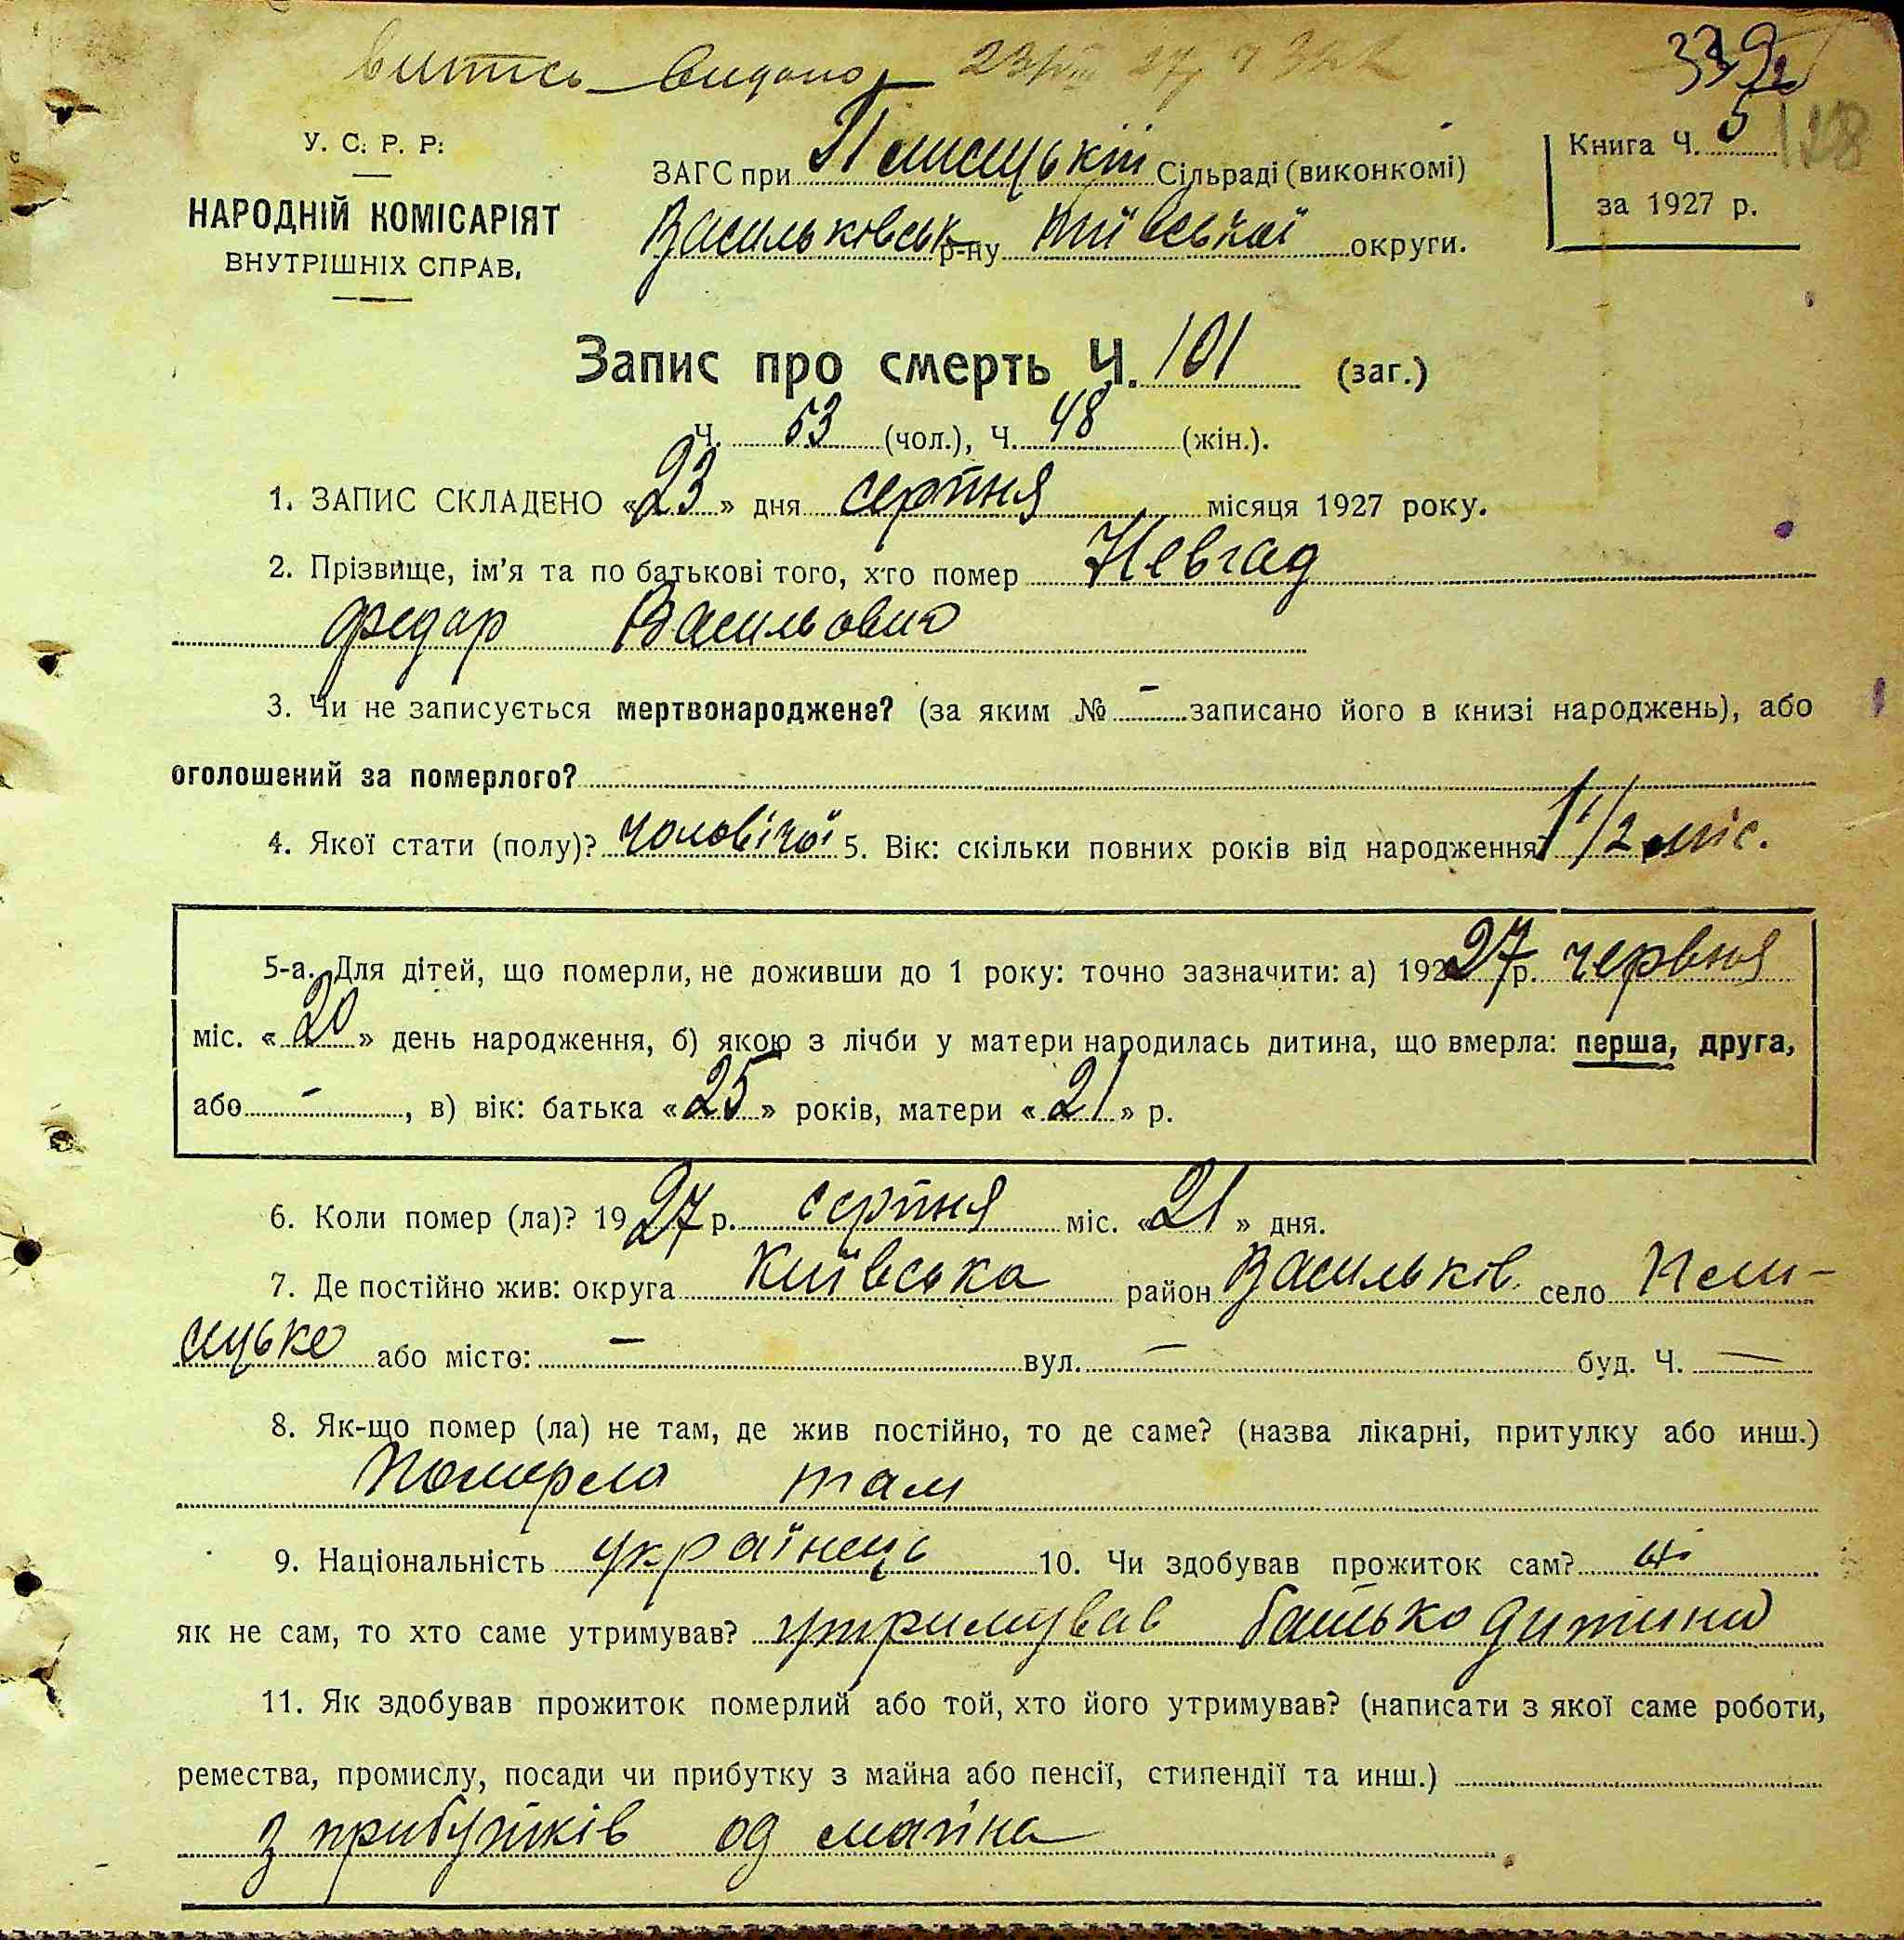 витись видано 23/VIII 27р
339
У. С. Р. Р.
НАРОДНІЙ КОМІСАРІЯТ
ВНУТРІШНІХ СПРАВ.
ЗАГС при Сільраді (виконкомі)
Васильківськ р-ну Київської округи.
Книга Ч. 5
за 1927 р.
Запис про смерть Ч. 101 (заг.)
Ч. 53 (чол.), Ч. 48 (жін.).
1. ЗАПИС СКЛАДЕНО «23» дня серпня місяця 1927 року.
2. Прізвище, ім'я та по батькові того, хто помер Невгад
Федар Васильович
3. Чи не записується мертвонароджене? (за яким № – записано його в книзі народжень), або
оголошений за померлого?
4. Якої стати (полу)? чоловічої 5. Вік: скільки повних років від народження? 1 1/2 міс.
5-а. Для дітей, що померли, не доживши до 1 року: точно зазначити: а) 19227 р. червня
міс. «20» день народження, б) якою з лічби у матери народилась дитина, що вмерла: перша, друга,
або –, в) вік: батька «25» років, матери «21» р.
6. Коли помер (ла)? 1927 р. серпня міс. «21» дня.
7. Де постійно жив: округа Київська район Васильків. село
або місто: – вул. – буд. Ч. –
8. Як-що помер (ла) не там, де жив постійно, то де саме? (назва лікарні, притулку або инш.)
Померла там
9. Національність українець 10. Чи здобував прожиток сам? ні
як не сам, то хто саме утримував? утримував батько дитини
11. Як здобував прожиток померлий або той, хто його утримував? (написати з якої саме роботи,
ремества, промислу, посади чи прибутку з майна або пенсії, стипендії та инш.)
з прибутків од майна